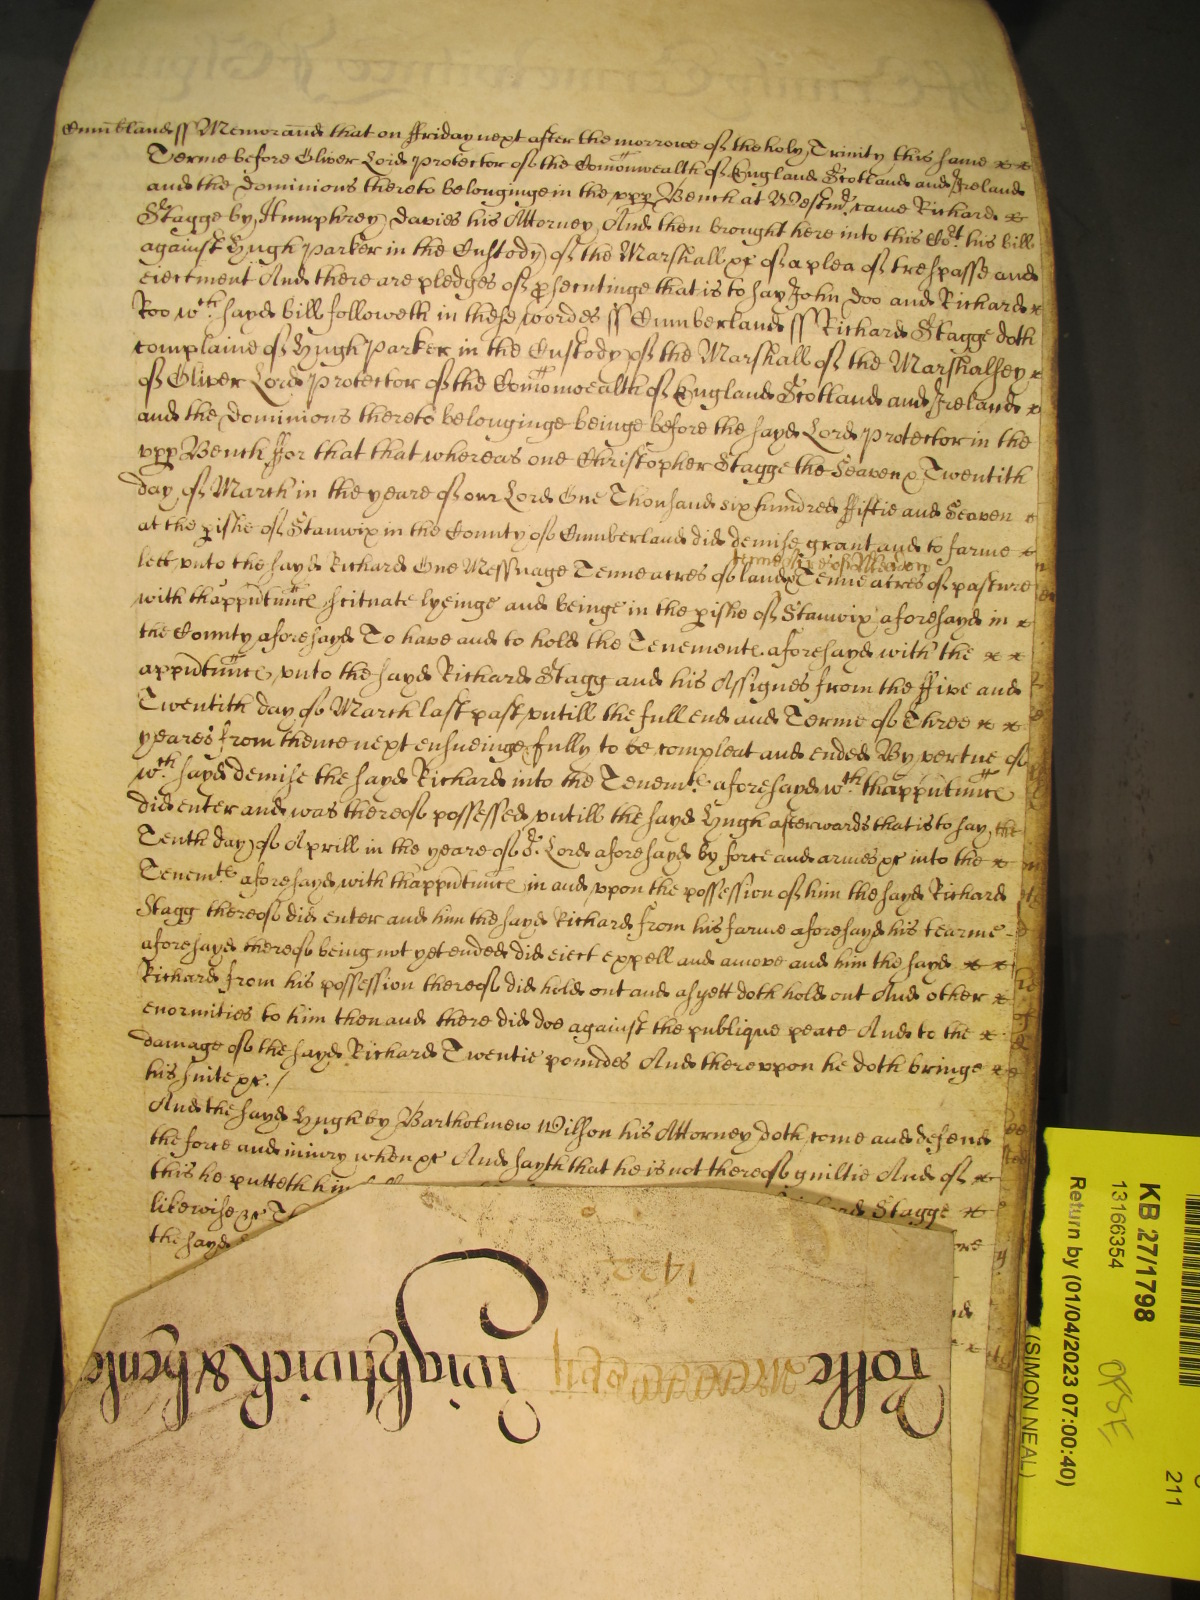 Cumbland ss Memorand that on Friday next after the morrowe of the holy Trinity this same
Terme before Oliver Lord Protector of the Comonwealth of England Scotland and Ireland
and the Dominions thereto belonginge in the upp Bench at Westmr came Richard
Stagge by Humphrey Davies his Attorney And then brought here into this Cort his bill
against Hugh Parker in the Custody of the Marshall &c of a plea of trespasse and
eiectment And there are pledges of psecutinge that is to say John Doo and Richard
Roo wch sayd bill followeth in these wordes ss Cumberland ss Richard Stagge doth
complaine of Hugh Parker in the Custody of the Marshall of the Marshalsey
of Oliver Lord Protector of the Comonwealth of England Scotland and Ireland
and the Dominions thereto belonginge beinge before the sayd Lord Protector in the
upp Bench For that that whereas one Christopher Stagge the Seaven & Twentith
day of March in the yeare of our Lord One Thousand six hundred Fiftie and Seaven
at the pishe of Stanwix in the County of Cumberland did demise grant and to farme
lett unto the sayd Richard One Messuage Tenne acres of land Tenne acres of Meadow Tenne acres of pasture
with thapputnnce scituate lyeinge and beinge in the pishe of Stanwix aforesayd in
the County aforesayd To have and to hold the Tenemente aforesayd with the
apputnnce unto the sayd Richard Stagg and his Assignes from the Five and
Twentith day of March last past untill the full end and Terme of Three
yeares from thence next ensueinge fully to be compleat and ended By vertue of
wch sayd demise the sayd Richard into the Tenemte aforesayd wth thapputnnce
did enter and was thereof possessed untill the sayd Hugh afterwards that is to say the
Tenth day of Aprill in the yeare of or Lord aforesayd by force and armes &c into the
Tenemte aforesayd with thapputnnce in and uppon the possession of him the sayd Richard
Stagg thereof did enter and him the sayd Richard from his farme aforesayd his tearme
aforesayd thereof being not yet ended did eiect expell and amove and him the sayd
Richard from his possession thereof did hold out and as yett doth hold out And other
enormities to him then and there did doe against the publique peace And to the
damage of the sayd Richard Twentie poundes And thereuppon he doth bringe
his suite &c
And the sayd Hugh by Bartholmew Wilson his Attorney doth come and defend
the force and iniury when &c And sayth that he is not thereof guiltie And of
this he putteth him
likewise &c Stagge
the sayd
1422
Rolle Wightwick & hensl
KB 27/1798
13166354
Return by (01/04/2023 07:00:40)
(SIMON NEAL)
211